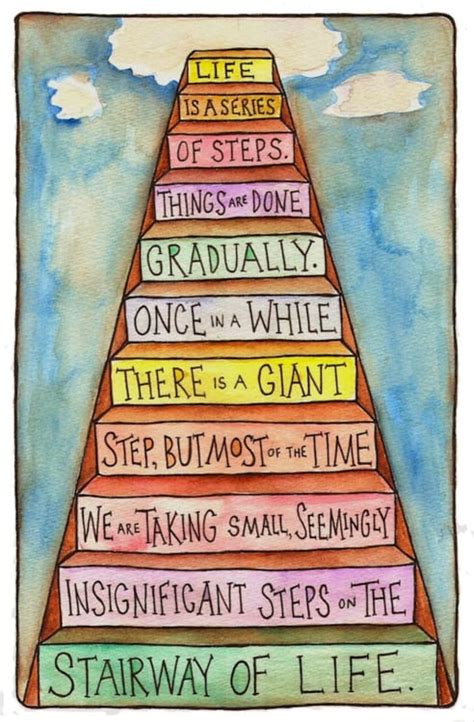 LIFE
IS A SERIES
OF STEPS.
THINGS ARE DONE
GRADUALLY.
ONCE IN A WHILE
THERE IS A GIANT
STEP, BUT MOST OF THE TIME
WE ARE TAKING SMALL, SEEMINGLY
INSIGNIFICANT STEPS ON THE
STAIRWAY OF LIFE.